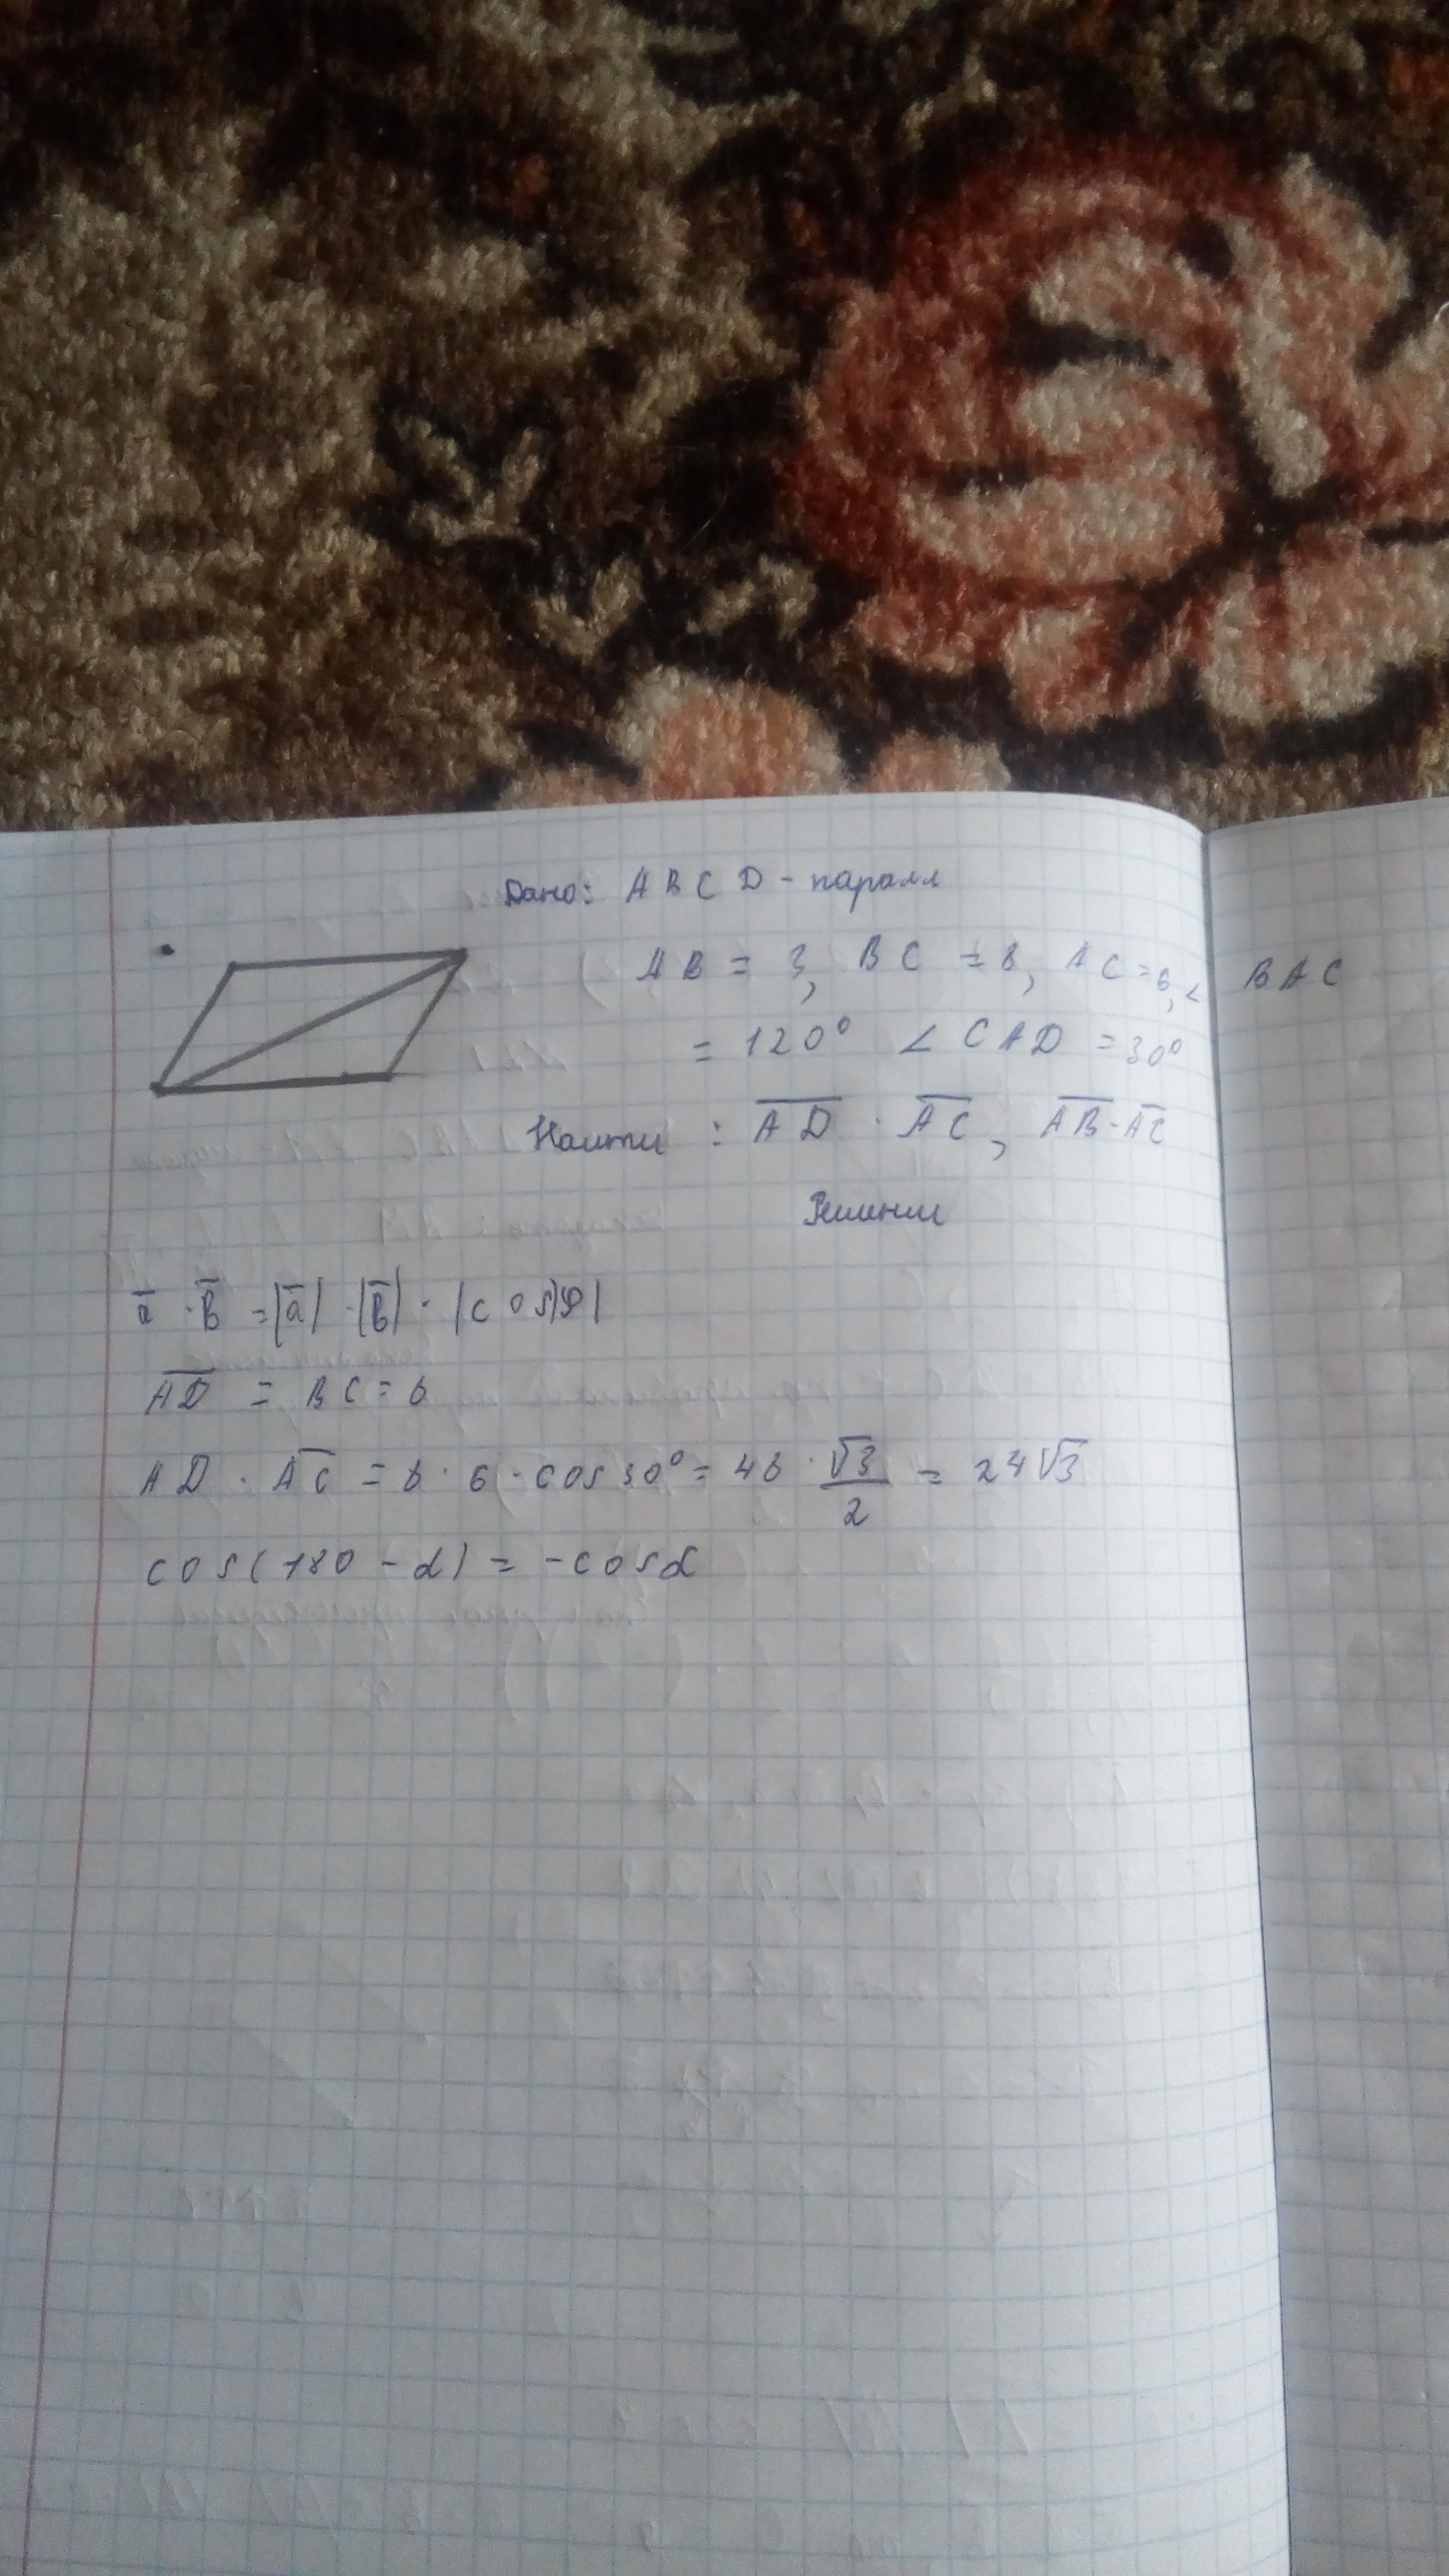 Дано: ABCD - паралл
AB = 3, BC = 8, AC = 6, < BAC
= 120° ∠ CAD = 30°
Найти : A̅D̅ · A̅C̅, A̅B̅ · A̅C̅
Решении
a̅ · B̅ = |a̅| · |B̅| · |cos|φ|
A̅D̅ = BC = 8
AD̅ · AC̅ = 8 · 6 · cos 30° = 48 · √3/2 = 24√3
cos(180 - α) = -cosα